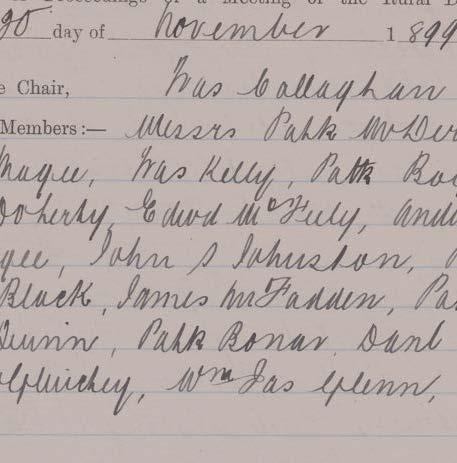 Proceedings of a Meeting of the Rural D
30 day of November 1899
e Chair, Jas Callaghan
Members:— Messrs Patk McDer
Magee, Jas Kelly, Patk Bo
Doherty, Edwd McFeely, And
gee, John S Johnston,
Black, James McFadden, Pa
Quinn, Patk Bonar Danl
Wm Jas Glenn,